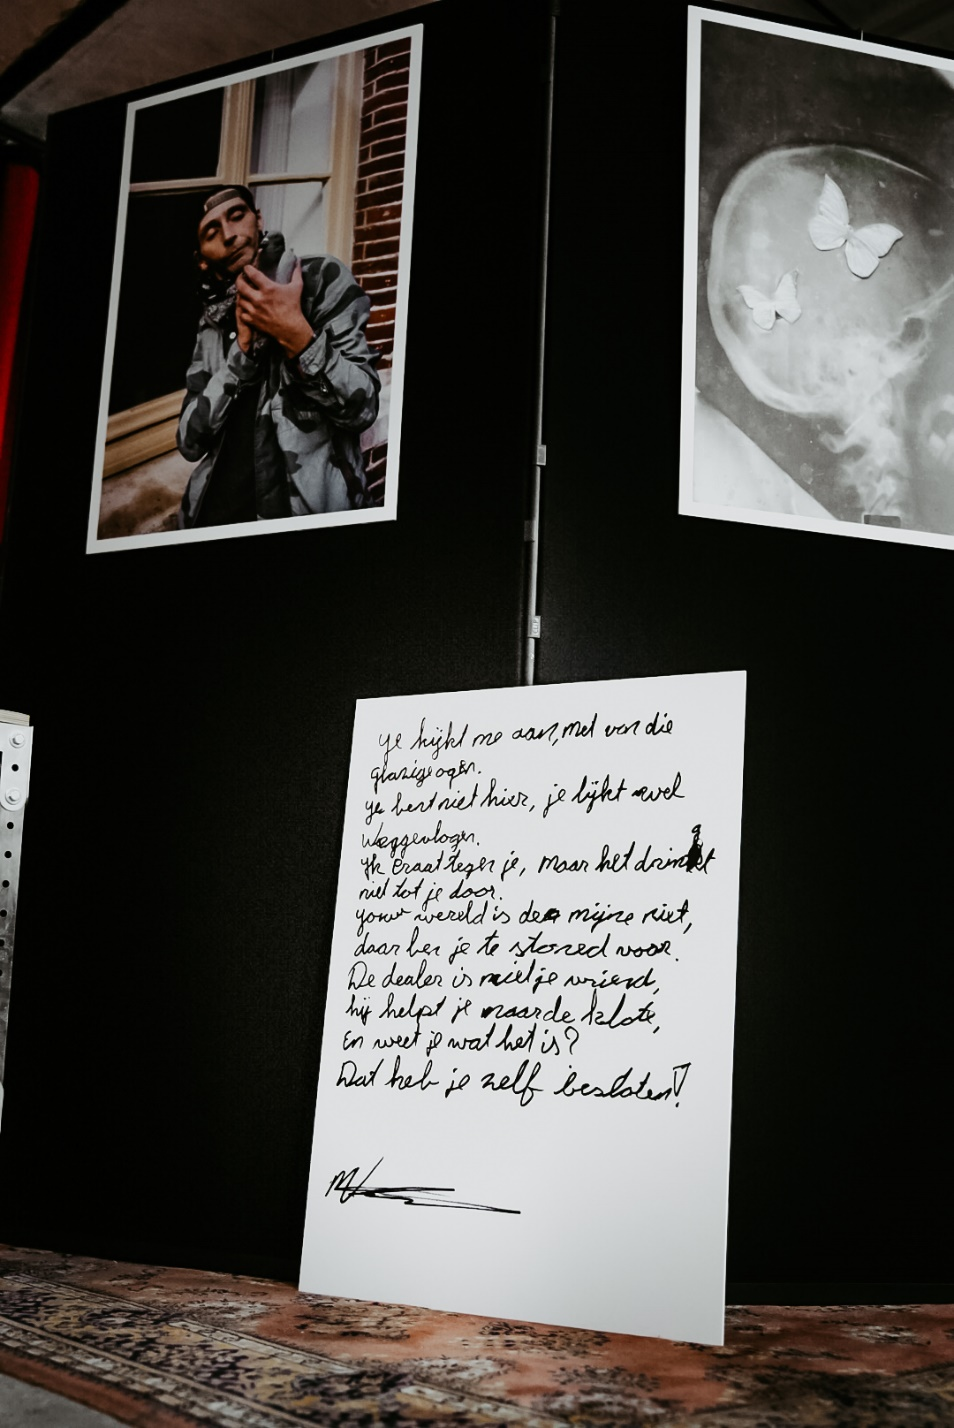 Je kijkt me aan, met van die
glazige ogen.
Je bent niet hier, je lijkt wel
Weggevlogen.
Ik praat tegen je, maar het dringt
niet tot je door.
Jouw wereld is de mijne niet,
daar ben je te stoned voor.
De dealer is niet je vriend,
hij helpt je naar de klote,
En weet je wat het is?
Dat heb je zelf besloten!